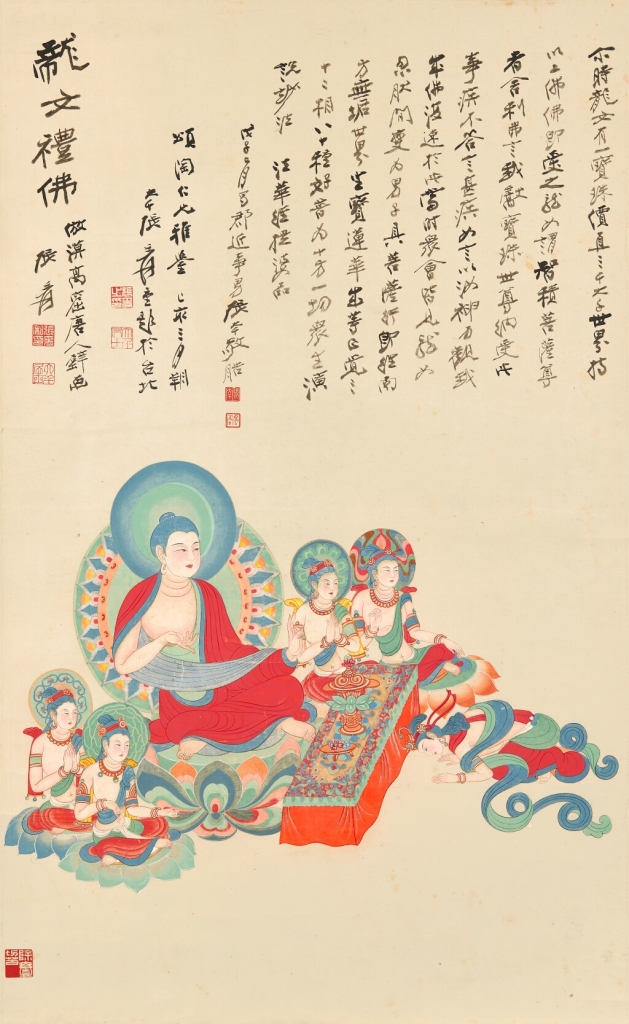 尔時龍女有一寶珠價直三千大千世界持
以上佛佛即受之龍女謂智積菩薩尊
者舍利弗言我獻寶珠世尊納受此
事疾不答言甚疾女言以汝神力觀我
成佛復速於此當時眾會皆見龍女
忽然間變為男子具菩薩行即往南
方無垢世界坐寶蓮華成等正覺三
十二相八十種好普為十方一切眾生演
說妙法 法華經提婆品
戊子二月蜀郡近事男張大千敬臨
頌陶仁兄雅鑒 三月朔
大千張爰重題於台北
龍女禮佛
倣漠高窟唐人壁画
張爰